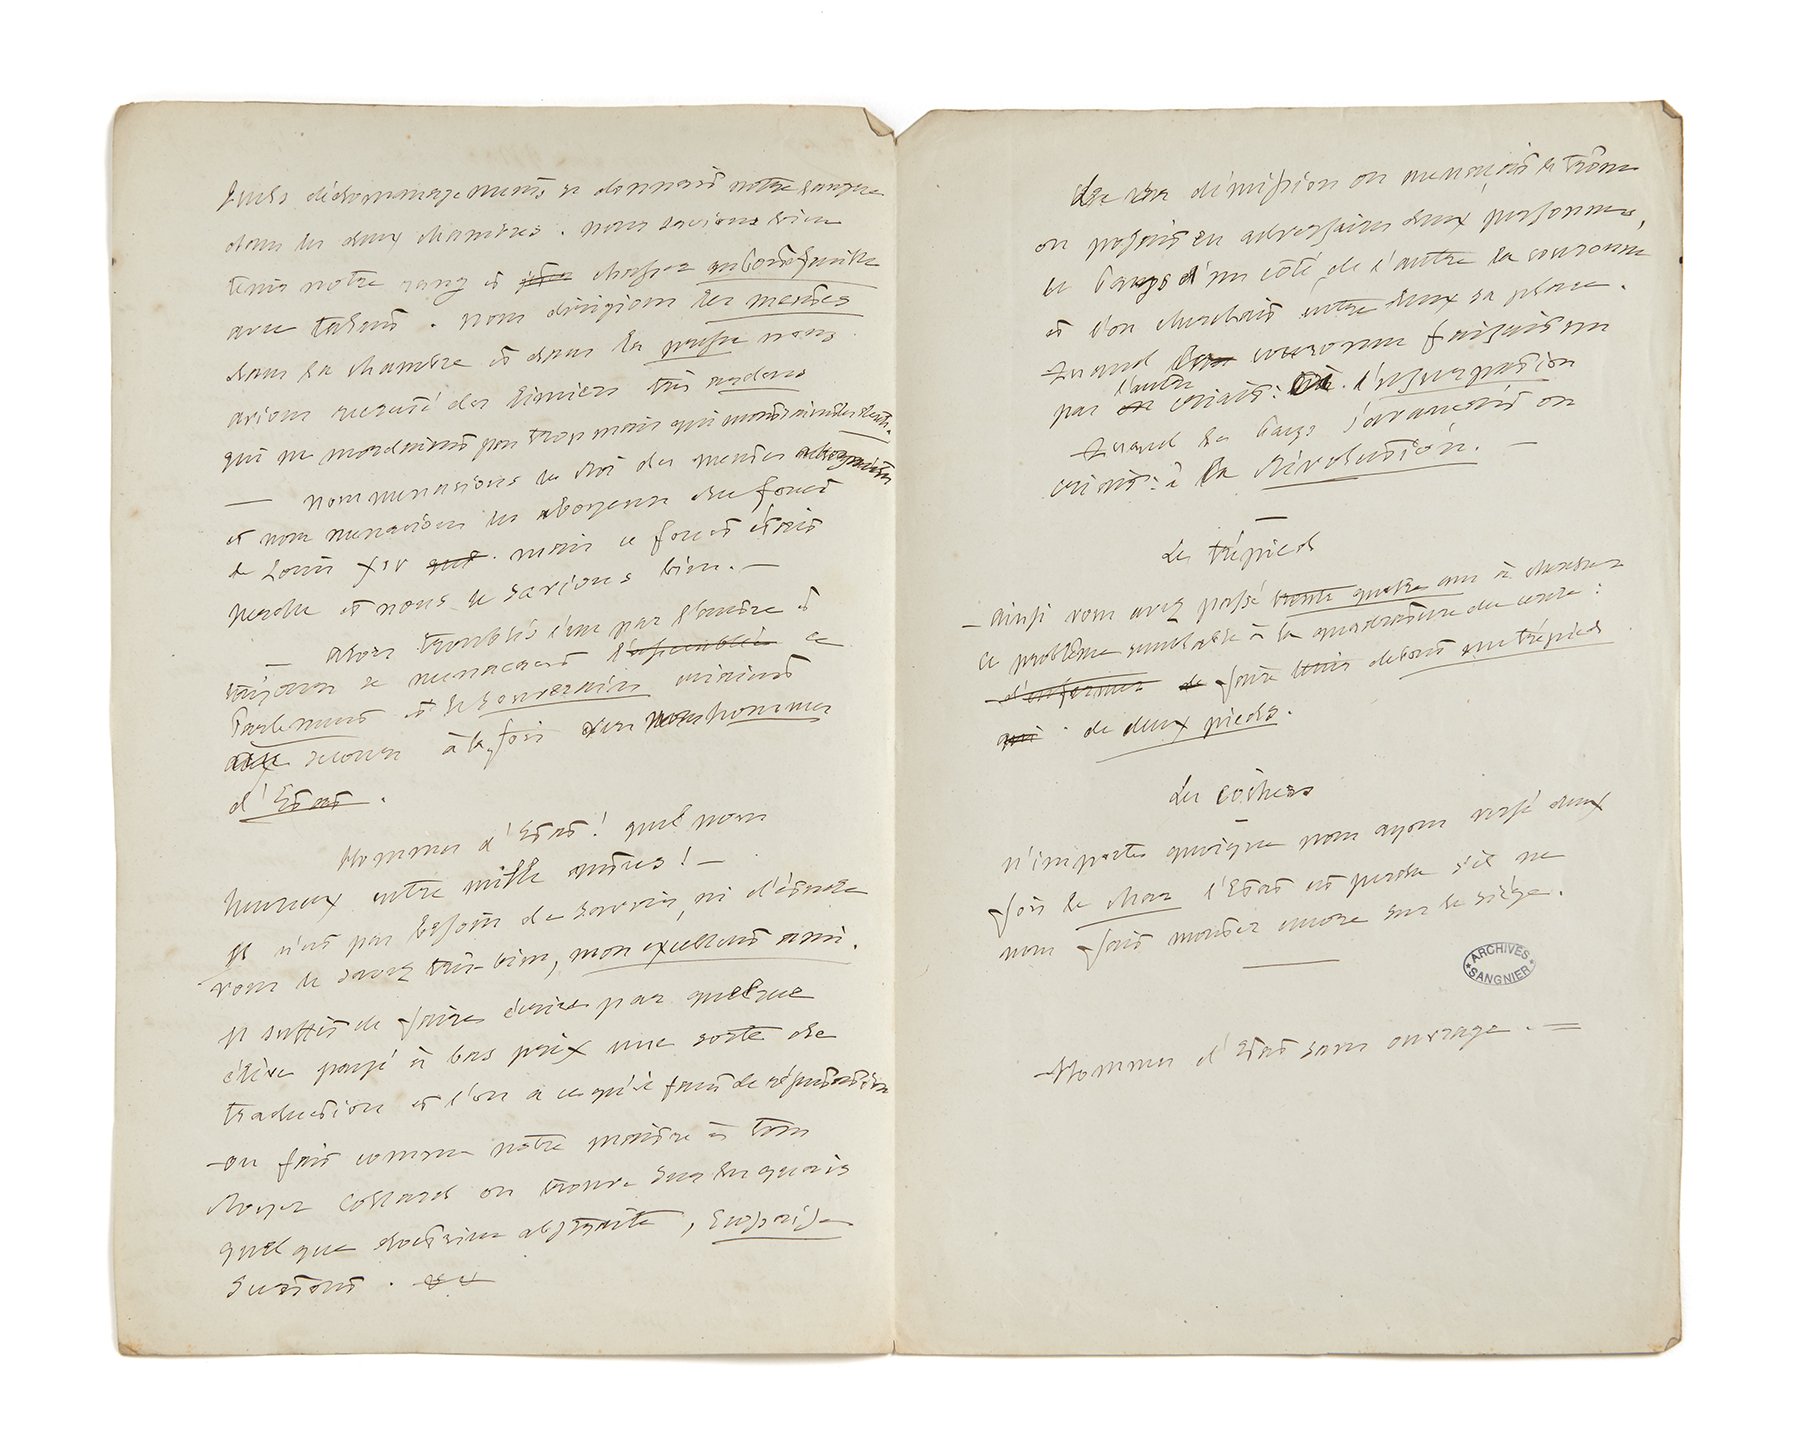 Quels dédommagements se donnait notre langue
dans les deux chambres. nous savions bien
tenir notre rang et chasser
avec talent. nous dirigions les meutes
dans la chambre et dans la presse nous
avions recruté des limiers très ardens
qui ne mordaient pas trop mais qui montraient les dents.
— nous menacions le Roi des meutes
et nous menacions les aboyeurs du fouet
de Louis XIV mais ce fouet était
perdu et nous le savions bien. —
— Alors troublés l'un par l'autre et
toujours se menaçant l'assemblée ce
Parlement et le souverain criaient
secours à la fois aux hommes
d'État.
Hommes d'État! quel nom
heureux entre mille autres! —
Il n'est pas besoin de savoir, ni d'étude
vous le savez très-bien, mon excellent ami.
Il suffit de faire écrire par quelque
élève payé à bas prix une sorte de
traduction et l'on a ce qu'il faut de réputation
— on fait comme notre maître à tous
Royer Collard on trouve sur les quais
quelque doctrine abstraite,
suffit.
De sa démission on menaçait le trône
on posait en adversaires deux personnes,
le Pays d'un côté, de l'autre la couronne
et l'on cherchait entre deux sa place.
Quand la couronne faisait un
l'autre
pas on criait: à l'usurpation
Quand le Pays s'avançait on
criait: à la Révolution. —
Le trépied
— Ainsi vous avez passé trente quatre ans à chercher
ce problème semblable à la quadrature du cercle:
d'enfermer de faire tenir debout un trépied
qui de deux pieds.
Les cochers
N'importe quoique nous ayons versé deux
fois le char l'État est perdu s'il ne
nous fait monter encore sur le siège.
ARCHIVES
SANGNIER
— Hommes d'État sans ouvrage. =